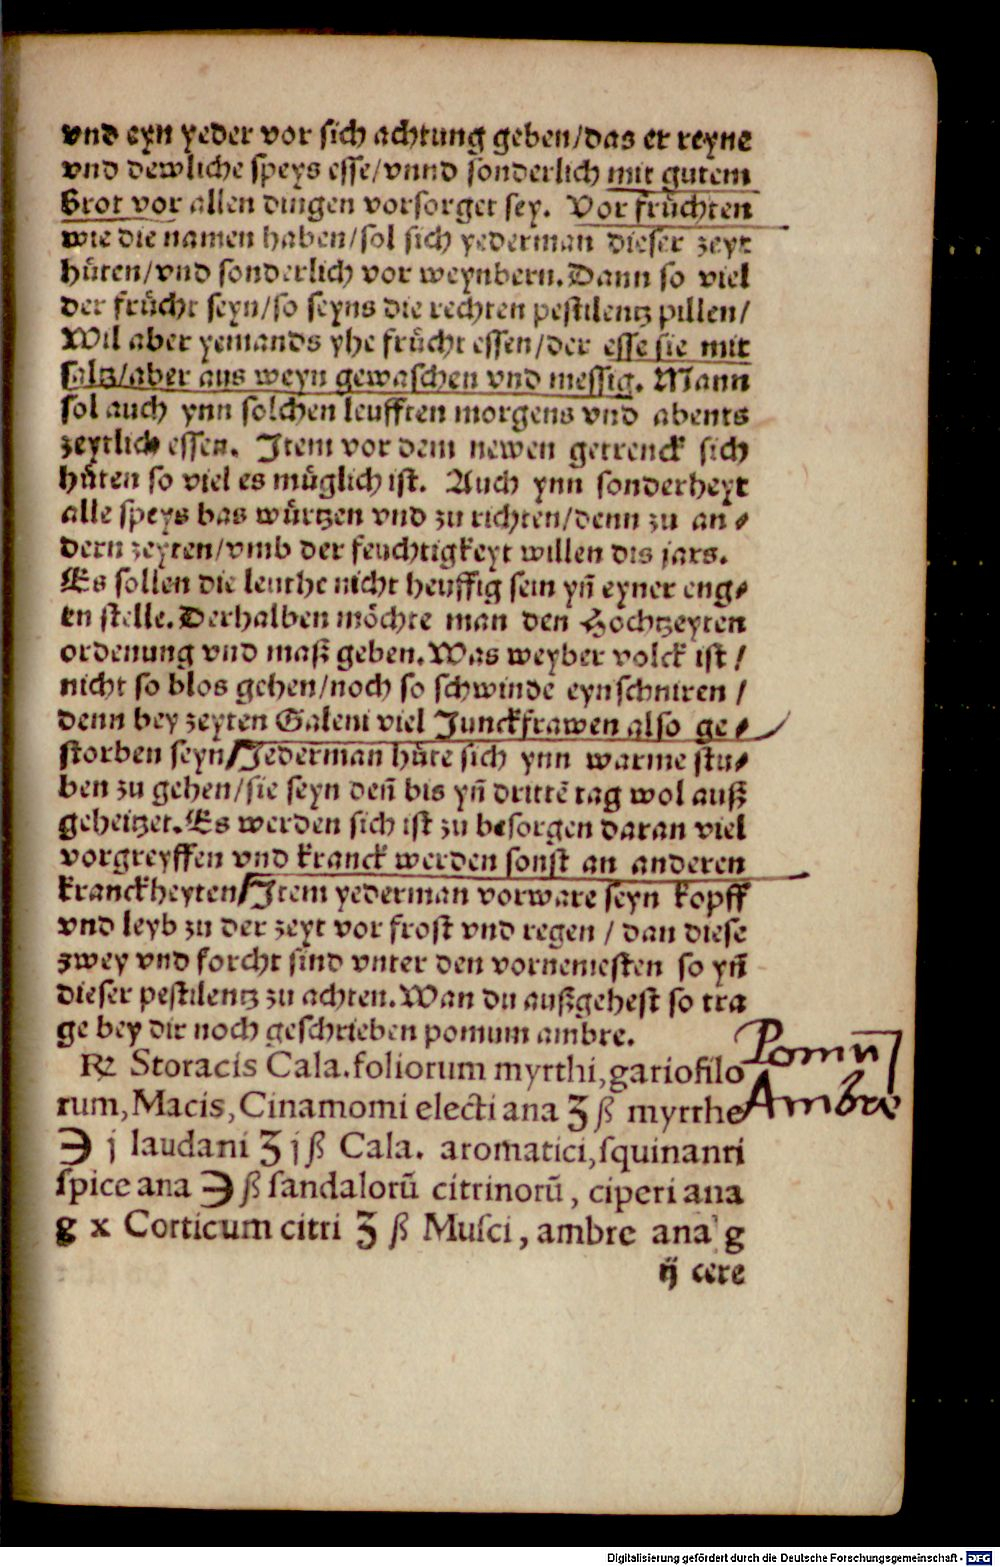 vnd eyn yeder vor sich achtung geben/das er reyne
vnd dewliche speys esse/vnnd sonderlich mit gutem
Brot vor allen dingen vorsorget sey. Vor fruͤchten
wie die namen haben/sol sich yederman dieser zeyt
huͤten/vnd sonderlich vor weynbern. Dann so viel
der fruͤcht seyn/so seyns die rechten pestilentz pillen/
Wil aber yemands yhe fruͤcht essen/der esse sie mit
saltz/aber aus weyn gewaschen vnd messig. Mann
sol auch ynn solchen leufften morgens vnd abents
zeytlich essen. Item vor dem newen getrenck sich
huͤten so viel es muͤglich ist. Auch ynn sonderheyt
alle speys bas wuͤrtzen vnd zu richten/denn zu an⸗
dern zeyten/vmb der feuchtigkeyt willen dis jars.
Es sollen die leuthe nicht heuffig sein yn̄ eyner eng⸗
en stelle. Derhalben moͤchte man den Hochtzeyten
ordenung vnd maß geben. Was weyber volck ist/
nicht so blos gehen/noch so schwinde eynschniren/
denn bey zeyten Galeni viel Junckfrawen also ge⸗
storben seyn/Jederman huͤte sich ynn warme stu⸗
ben zu gehen/sie seyn den̄ bis yn̄ drittē tag wol auß
geheitzet. Es werden sich ist zu besorgen daran viel
vorgreyffen vnd kranck werden sonst an anderen
kranckheyten/Item yederman vorware seyn kopff
vnd leyb zu der zeyt vor frost vnd regen/dan diese
zwey vnd forcht sind vnter den vornemesten so yn̄
dieser pestilentz zu achten. Wan du außgehest so tra
ge bey dir noch geschrieben pomum ambre.
℞ Storacis Cala. foliorum myrthi, gariofilo
rum, Macis, Cinamomi electi ana ʒ ß myrrhe
℈ j laudani ʒ j ß Cala. aromatici, squinanti
spice ana ℈ ß sandalorū citrinorū, ciperi ana
g x Corticum citri ʒ ß Musci, ambre ana g
ij cere
Pomū
Ambre
Digitalisierung gefördert durch die Deutsche Forschungsgemeinschaft - DFG